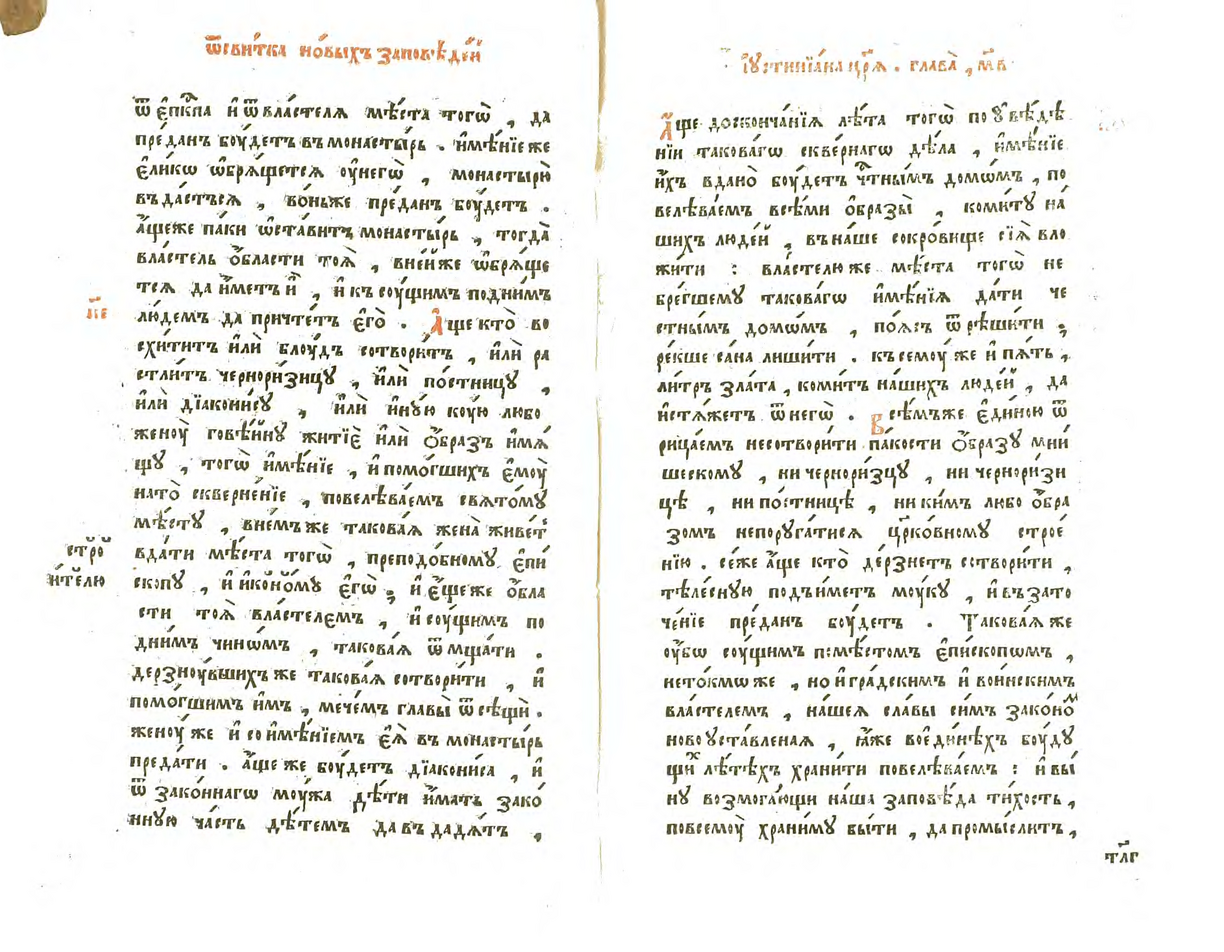 ѿ свитка но́выхъ заповѣ́дей
ѿ є҆пⷭ҇кпа и҆ ѿ вла́стелѧ мѣ́ста тогѡ̀ , да
пре́данъ бꙋ́детъ въ монасты́рь . и҆мѣ́нїе же
є҆ли́кѡ ѡ҆брѧ́щетсѧ ᲂу҆ негѡ̀ , монастырю̀
въда́стьсѧ , во́ньже пре́данъ бꙋ́детъ .
а҆́щеже па́ки ѡ҆ста́витъ монасты́рь , тогда̀
вла́стель ѻ҆́бласти тоѧ̀ , вне́йже ѡ҆брѧ́ще
тсѧ да и҆́метъ и҆̀ , и҆ къ сꙋ́щимъ под ни́мъ
лю́демъ да причте́тъ є҆го̀ . А҆́ще кто̀ во
схи́титъ и҆лѝ блꙋ́дъ сотвори́тъ , и҆лѝ ра
стли́тъ черноризи́цꙋ , и҆лѝ по́стницꙋ ,
и҆лѝ дїа́конисꙋ , и҆лѝ и҆нꙋ́ю кꙋ́ю любо
женꙋ̀ говѣ́йнꙋ житїѐ и҆лѝ ѻ҆́бразъ и҆мꙋ́
щꙋ , тогѡ̀ и҆мѣ́нїе , и҆ помо́гшихъ є҆мꙋ̀
на то̀ скверне́нїе , повелѣва́емъ свѧто́мꙋ
мѣ́стꙋ , вне́мъже такова́ѧ жена̀ живе́тъ
вда́ти мѣ́ста тогѡ̀ , преподо́бномꙋ є҆пи
скопꙋ , и҆ и҆коно́мꙋ є҆гѡ̀ , и҆ є҆ще́же ѻ҆бла
сти тоѧ̀ вла́стелемъ , и҆ сꙋ́щимъ по
дни́мъ чино́мъ , такова́ѧ ѿмща́ти .
дерзнꙋ́вшихъ же такова́ѧ сотвори́ти , и҆
помо́гшимъ и҆̀мъ , мече́мъ главы̀ ѿсѣщѝ .
женꙋ́ же и҆ со и҆мѣ́нїемъ є҆ѧ̀ въ монасты́рь
преда́ти . а҆́ще же бꙋ́детъ дїа́кониса , и҆
ѿ зако́ннагѡ мꙋ́жа дѣ́ти и҆́мать зако́
ннꙋю ча́сть дѣ́темъ да въдадѧ́тъ ,
н҃е
стро
и́телю
і҆ꙋстинїа́на цр҃ѧ̀ . глава̀ , м҃в
А҆́ще до сконча́нїѧ лѣ́та тогѡ̀ по ᲂу҆вѣ́дѣ
нїи такова́гѡ скве́рнагѡ дѣ́ла , и҆мѣ́нїе
и҆́хъ вдано̀ бꙋ́детъ чⷭ҇тны́мъ домѡ́мъ , по
велѣва́емъ всѣ́ми ѻ҆́бразы̀ , коми́тꙋ на́
шихъ люде́й , въ на́ше сокро́вище сїѧ̀ вло
жи́ти : вла́стелю же мѣ́ста тогѡ̀ не
бре́гшемꙋ такова́гѡ и҆мѣ́нїѧ да́ти че
стны́мъ домѡ́мъ , по́ѧсъ ѿрѣши́ти ,
ре́кше са́на лиши́ти . къ семꙋ́ же и҆ пѧ́ть ,
ли́тръ зла́та , коми́тъ на́шихъ люде́й , да
и҆стѧ́жетъ ѿ негѡ̀ . Всѣ́мъже є҆ди́ною ѿ
рица́емъ не сотвори́ти па́кости ѻ҆́бразꙋ мни́
шескомꙋ , ни черноризцꙋ , ни черноризи
цѣ , ни по́стницѣ , ни ки́мъ любо ѻ҆бра
зомъ не порꙋга́тисѧ цр҃ко́вномꙋ строе́
нїю . сеже а҆́ще кто̀ де́рзнетъ сотвори́ти ,
тѣле́снꙋю подъи́метъ мꙋ́кꙋ , и҆ въ зато
че́нїе пре́данъ бꙋ́детъ . Такова́ѧ же
ᲂу҆́бѡ сꙋ́щимъ по мѣ́стомъ є҆пи́скопѡмъ ,
не то́кмѡ же , но и҆ гра́дскимъ и҆ во́инскимъ
вла́стелемъ , на́шеѧ сла́вы си́мъ зако́но́ⷨ
ново ᲂу҆ста́вленаѧ , ꙗ҆́же во є҆ди́нѣхъ бꙋ́дꙋ
щиⷯ лѣ́тѣхъ храни́ти повелѣва́емъ : и҆ вы́
нꙋ возмога́ющи на́ша заповѣ́да ти́хость ,
по всемꙋ̀ храни́мꙋ бы́ти , да промы́слитъ ,
тл҃г